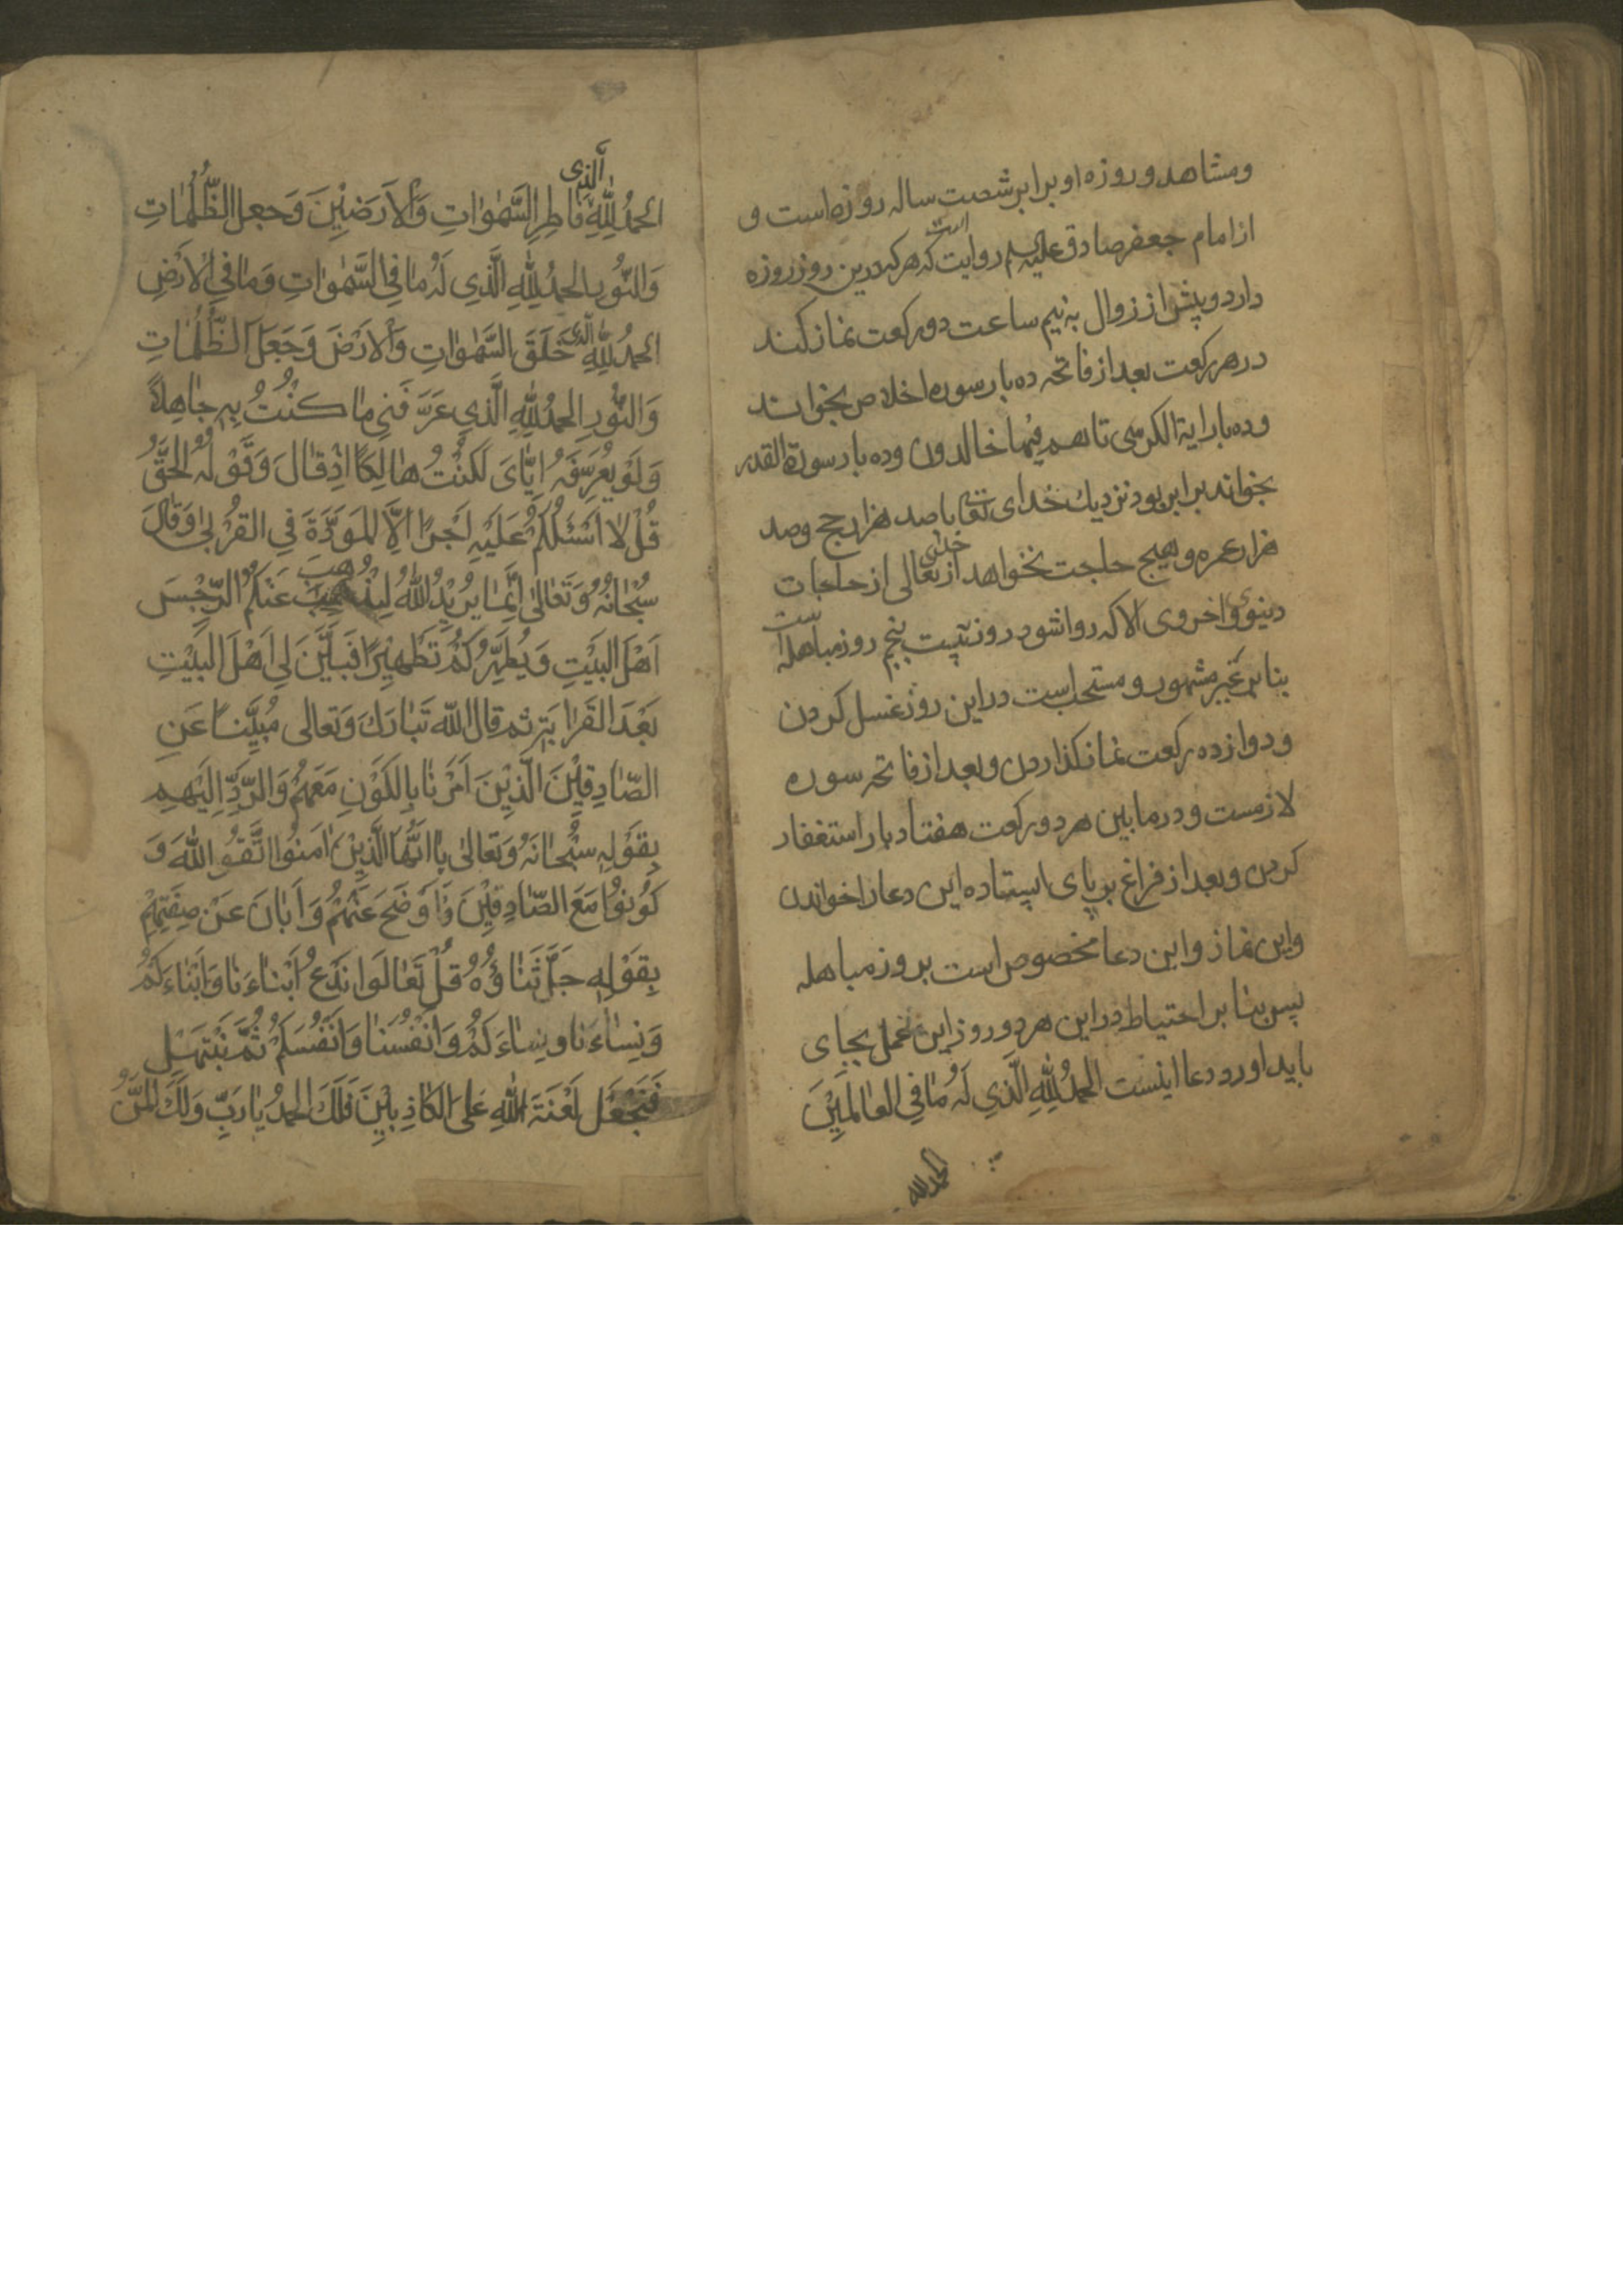 ومشاهد و روزه او برابر شصت ساله روزه است و
از امام جعفر صادق علیه السلم روایت است که هر که درین روز روزه
دارد و پیش از زوال به نیم ساعت دو رکعت نماز کند
در هر رکعت بعد از فاتحه ده بار سوره اخلاص بخواند
و ده بار ایة الکرسی تا هم فیها خالدون و ده بار سورة القدر
بخواند برابر بود نزدیك خدای تعا با صد هزار حج وصد
هزار عمره و هیچ حاجت نخواهد از خدای تعالی از حاجات
دینوی و اخروی الا که روا شود روز بیست پنجم روز مباهله است
بنابر غیر مشهور و مستحب است در این روز غسل کردن
و دوازده رکعت نماز کذاردن و بعد از فاتحه سوره
لازمست و در مابین هر دو رکعت هفتاد بار استغفار
کردن و بعد از فراغ بر پای ایستاده این دعا را خواندن
واین نماز واین دعا مخصوص است بروز مباهله
پس بنا بر احتیاط در این هر دو روز این عمل بجای
باید اورد و دعا اینست الحمدُ لِلّٰهِ الَّذِي لَهُ مٰا فِي العٰالَمِيْنَ
الحمد لله
الحمدُ لِلّٰهِ الَّذی فٰاطِرِ السَّمٰوٰاتِ وَالْاَرَضِيْنَ وَجعل الظُّلُمٰاتِ
وَالنُّور الحمدُ لِلّٰهِ الَّذِي لَهُ مٰا فِي السَّمٰوٰاتِ وَمٰا فِي الْاَرْضِ
الحمدُ لِلّٰهِ الَّذی خَلَقَ السَّمٰوٰاتِ وَالْاَرْضَ وَجَعَلَ الظُّلُمٰاتِ
وَالنُّورِ الحمدُ لِلّٰهِ الَّذِي عَرَّفَنِي مٰا كُنْتُ بِهِ جٰاهِلاً
وَلَوْ يُعَرِّفَهُ اِيّٰاىَ لَكُنْتُ هٰالِكًا اِذْ قٰالَ وَقَوْلُهُ الْحَقُّ
قُلْ لٰا اَسْئَلُكُمْ عَلَيْهِ اَجْرًا اِلَّا المَوَدَّةَ فِي القُرْبٰى وَقٰالَ
سُبْحٰانَهُ وَتَعٰالىٰ اِنَّمٰا يُرِيْدُ اللّٰهُ لِيُذْهِبَ عَنْكُمُ الرِّجْسَ
اَهْلَ البَيْتِ وَيُطَهِّرَكُمْ تَطْهِيْرًا فَبَيَّنَ لِي اَهْلَ البَيْتِ
بَعْدَ القَرٰابَةِ ثم قال اللّٰه تَبٰارَكَ وَتعالى مُبَيِّنًا عَنِ
الصّٰادِقِيْنَ الَّذِيْنَ اَمَرْنٰا بِالكَوْنِ مَعَهُمْ وَالرَّدِّ اِلَيْهِم
بِقَوْلِهِ سُبْحٰانَهُ وَتَعٰالىٰ يٰا اَيُّهَا الَّذِيْنَ اٰمَنُوا اتَّقُوا اللّٰهَ وَ
كُوْنُوْا مَعَ الصّٰادِقِيْنَ وَاَوْضَحَ عَنْهُمْ وَاَبٰانَ عَنْ صِفَتِهِمْ
بِقَوْلِهِ جَلَّ ثَنٰاؤُهُ قُلْ تَعٰالَوا نَدْعُ اَبْنٰاءَنٰا وَاَبْنٰاءَكُمْ
وَنِسٰاءَنٰا ونِسٰاءَكُمْ وَاَنْفُسَنٰا وَاَنْفُسَكُمْ ثُمَّ نَبْتَهِلْ
فَنَجْعَل لَعْنَةَ اللّٰهِ عَلَى الكٰاذِبِيْنَ فَلَكَ الحمدُ يٰا رَبِّ وَلَكَ المَنُّ